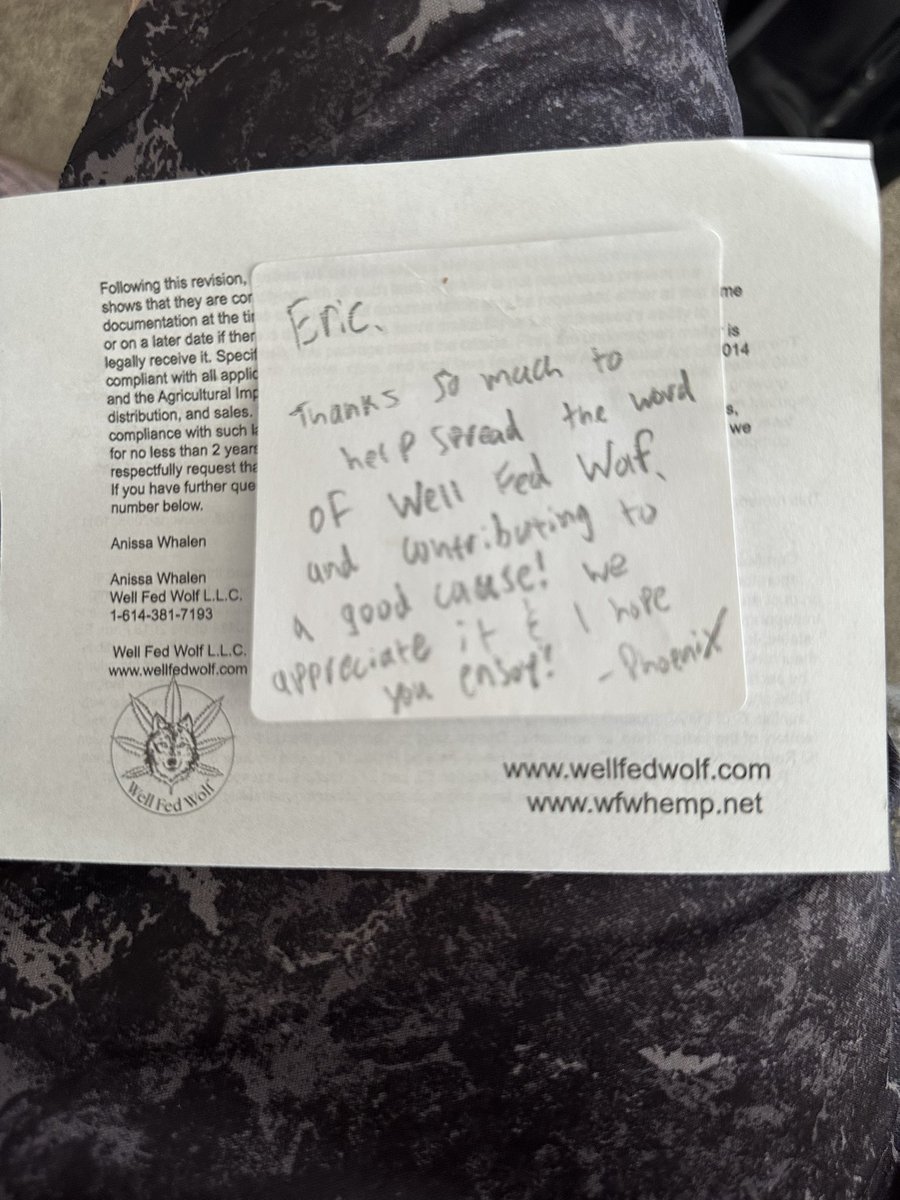 Following this revision,
shows that they are cor
documentation at the tir
or on a later date if ther
legally receive it. Specif
compliant with all applic
and the Agricultural Imp
distribution, and sales.
compliance with such la
for no less than 2 years
respectfully request tha
If you have further que
number below.
Anissa Whalen
Anissa Whalen
Well Fed Wolf L.L.C.
1-614-381-7193
Well Fed Wolf L.L.C.
www.wellfedwolf.com
Well Fed Wolf
me
is
014
s,
we
Eric,
Thanks so much to
help spread the word
of Well Fed Wof,
and contributing to
a good cause! We
appreciate it & I hope
you enjoy!
- Phoenix
www.wellfedwolf.com
www.wfwhemp.net